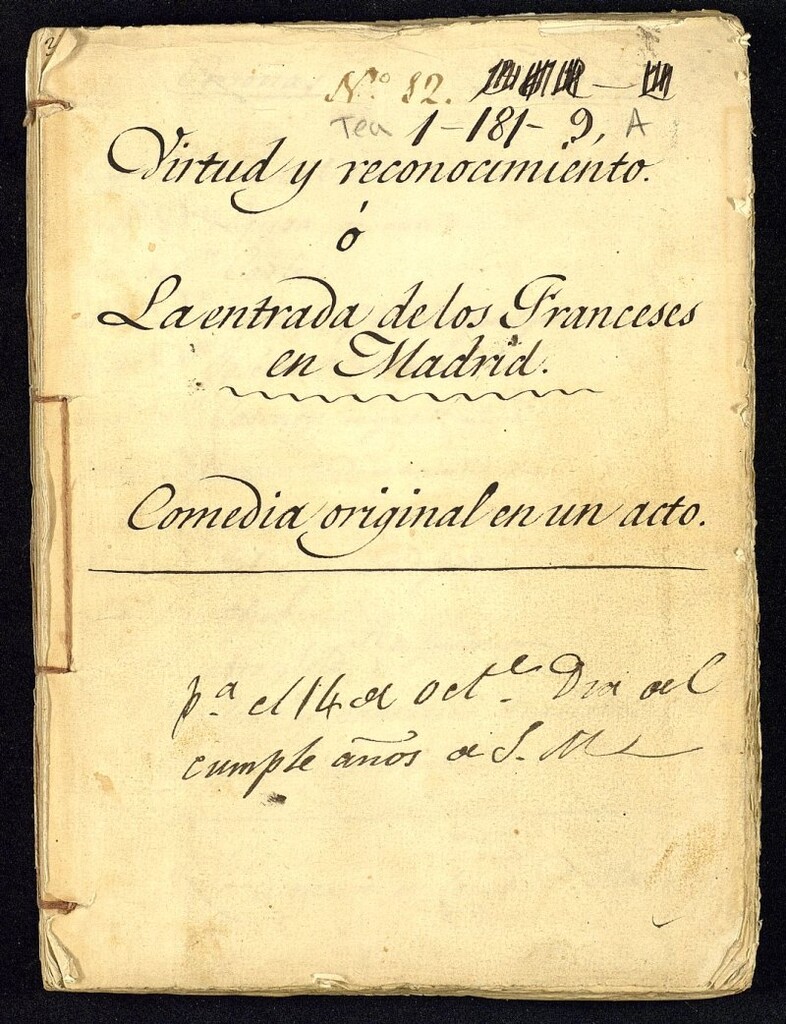 3
Nº 12.
Tea 1-181-9, A
Virtud y reconocimiento.
ó
La entrada de los Franceses
en Madrid.
Comedia original en un acto.
pª el 14 de octe. Dia del
cumple años de S. M